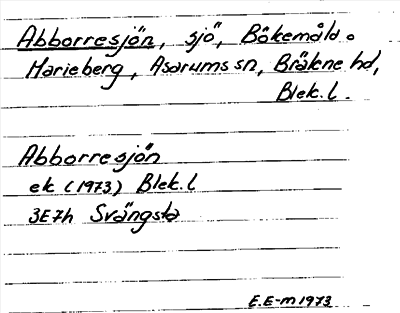 Abborresjön, sjö, Bökemåla o
Marieberg, Asarums sn, Bräkne hd,
Blek. l.
Abborresjön
ek (1973) Blek. l
3E7h Svängsta
E.E-m 1973